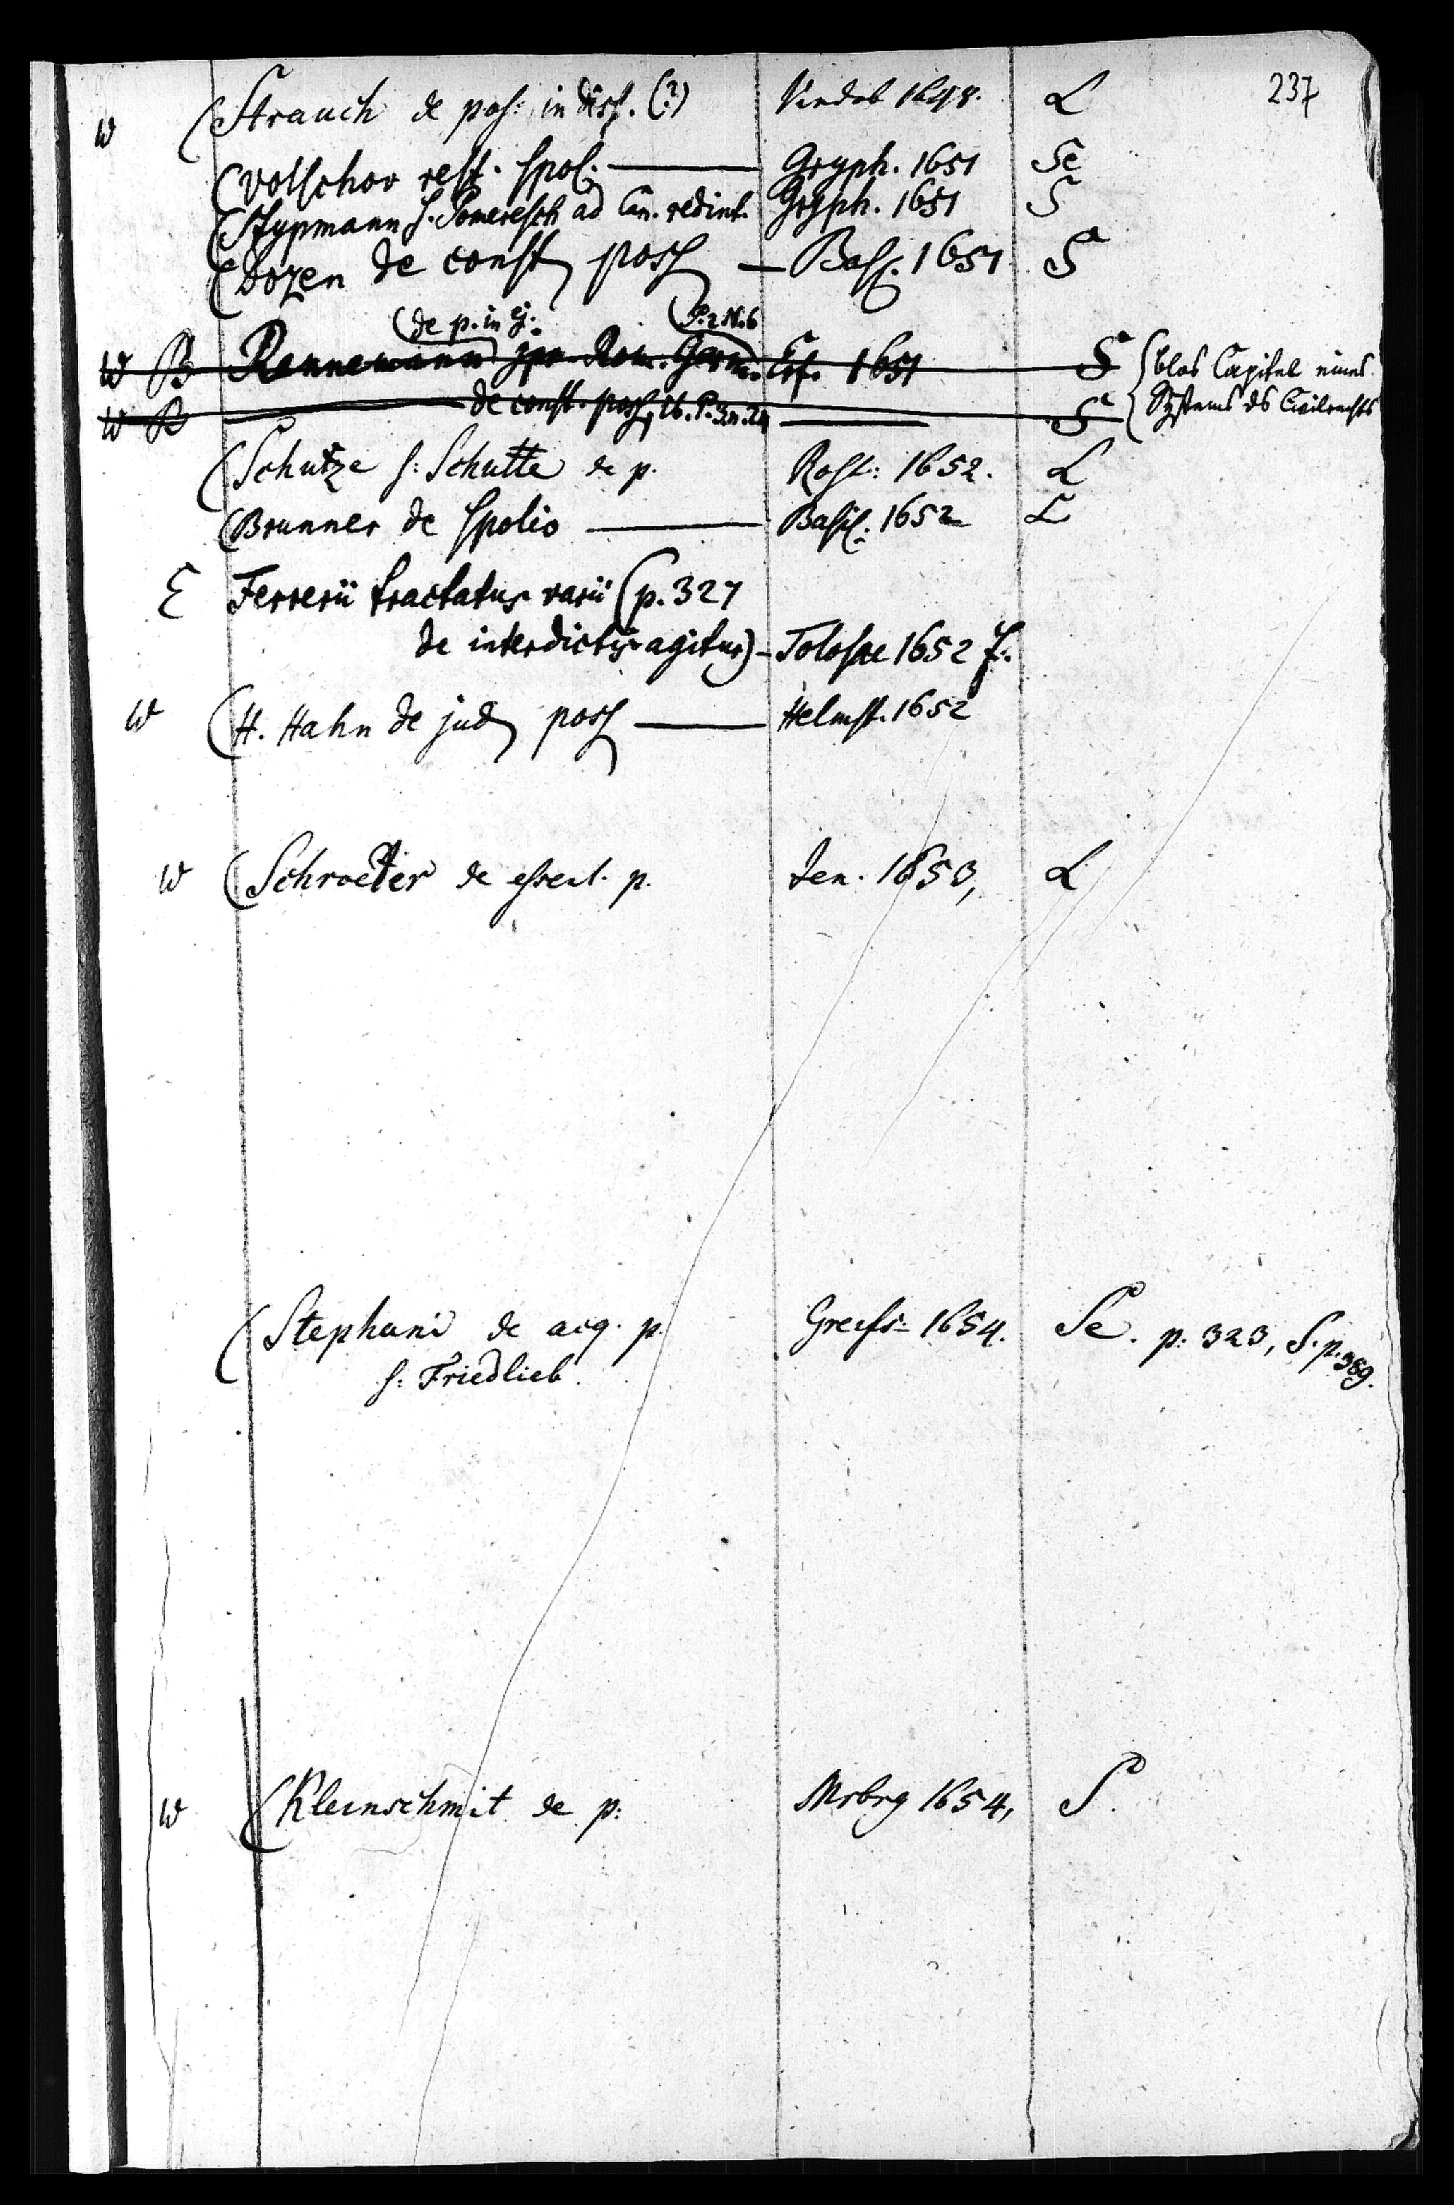 237
W (Strauch de poss: in diss. (?) Vindob 1648. L
(Volschov rest. spol. — Gryph. 1651 Se
(Stypmann s. Pomeresch ad Can. redint. Gryph. 1651 S
(Dozen de const poss — Bas. 1651 S
(de p. in ej: (P. 2 N. 6
W B Rennemann jpr. Rom. Germ. Erf. 1651 S {blos Capitel eines
W B — de const. poss. ib. P. 3. n. 24 — S {Systems ds Civilrechts
(Schutze s: Schutte de p. Rost: 1652. L
(Brunner de spolio — Basil: 1652 L
E Ferrerii tractatus varii (p. 327
de interdictis agitur) – Tolosae 1652 f.
W (H. Hahn de jud poss — Helmst. 1652
W (Schroeter de essent. p. Jen. 1653, L
(Stephani de acq. p. Greifs: 1654. Se. p: 323, S. p. 389.
s: Friedlieb.
W (Kleinschmit de p: Mrbrg 1654, S.